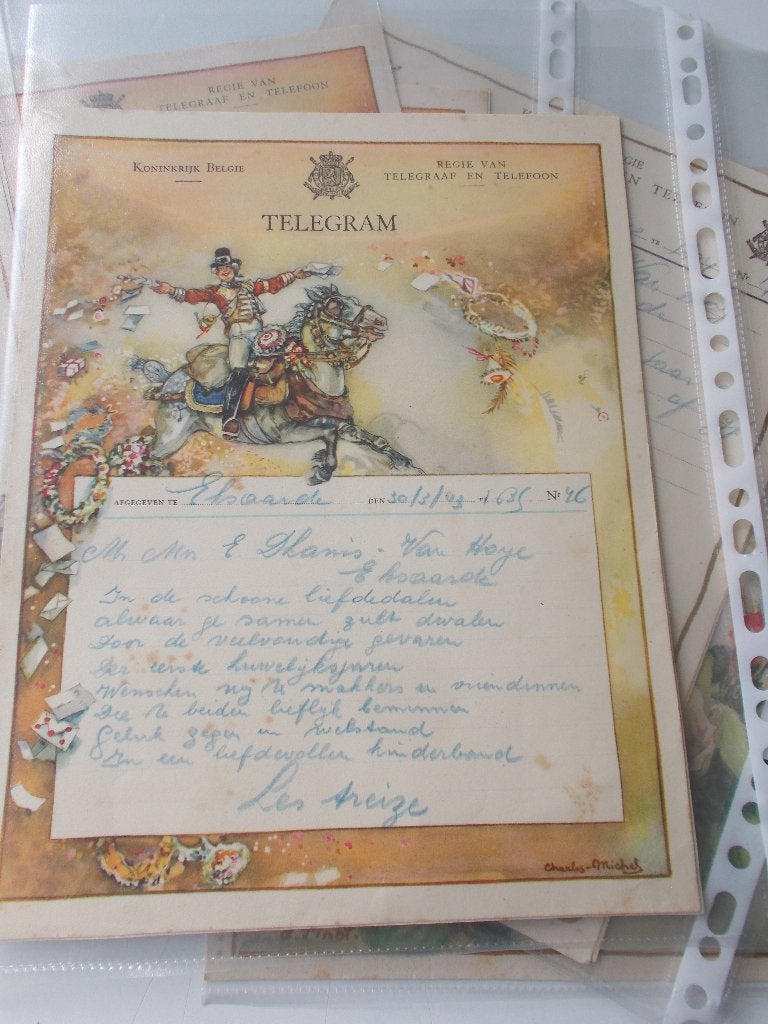 REGIE VAN
TELEGRAAF EN TELEFOON
KONINKRIJK BELGIE
REGIE VAN
TELEGRAAF EN TELEFOON
TELEGRAM
AFGEGEVEN TE Elsaarde DEN 30/3/43 TE 635 Nr 46
Mr Mn E Dhanis - Van Hoye
Elsaarde
In de schoone liefdedalen
alwaar ge samen zult dwalen
Door de veelvoudige gevaren
Der eerste huwelijksjaren
Wenschen wij te makkers en vriendinnen
Die te beiden lieflijk beminnen
Geluk zegen en welstand
In een liefdevollen kinderband
Les treize
Charles-Michel
GIE